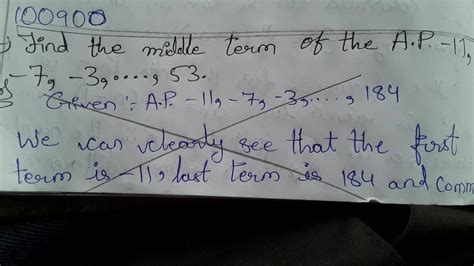 100900
) Find the middle term of the A.P. -11,
-7, -3, ....., 53.
Given :- A.P. -11, -7, -3, ....., 184
We can clearly see that the first
term is -11, last term is 184 and comm